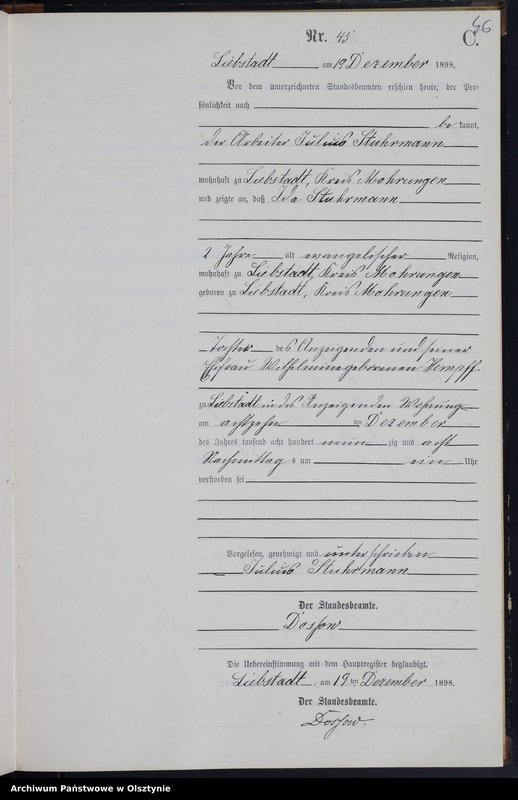 46
Nr. 45
C.
Liebstadt am 19 Dezember 1898.
Vor dem unterzeichneten Standesbeamten erschien heute, der Per-
sönlichkeit nach
be kannt,
der Arbeiter Julius Stuhrmann
wohnhaft zu Liebstadt, Kreis Mohrungen
und zeigte an, daß Ida Stuhrmann
2 Jahre alt evangelischer Religion,
wohnhaft zu Liebstadt, Kreis Mohrungen
geboren zu Liebstadt, Kreis Mohrungen
Tochter des Anzeigenden und seiner
Ehefrau Wilhelmine geborenen Hempff.
zu Liebstadt in des Anzeigenden Wohnung
am achtzehn ten Dezember
des Jahres tausend acht hundert neun zig und acht
Nachmittag s um ein Uhr
verstorben sei
Vorgelesen, genehmigt und unterschrieben
Julius Stuhrmann
Der Standesbeamte.
Dossow
Die Uebereinstimmung mit dem Hauptregister beglaubigt.
Liebstadt, am 19 ten Dezember 1898.
Der Standesbeamte.
Dossow.
Archiwum Państwowe w Olsztynie